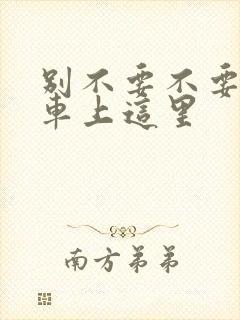 别不要不要
車上這里
南方弟弟